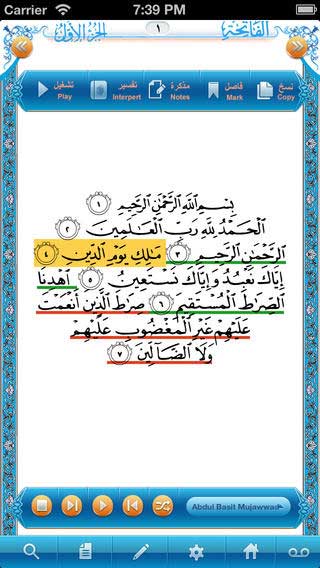 Carrier 7:39 PM
الجزء الأول ١ الفاتحة
تشغيل تفسير مذكرة فاصل نسخ
Play Interpert Notes Mark Copy
بِسْمِ ٱللَّهِ ٱلرَّحْمَٰنِ ٱلرَّحِيمِ ١
ٱلْحَمْدُ لِلَّهِ رَبِّ ٱلْعَٰلَمِينَ ٢
ٱلرَّحْمَٰنِ ٱلرَّحِيمِ ٣ مَٰلِكِ يَوْمِ ٱلدِّينِ ٤
إِيَّاكَ نَعْبُدُ وَإِيَّاكَ نَسْتَعِينُ ٥ ٱهْدِنَا
ٱلصِّرَٰطَ ٱلْمُسْتَقِيمَ ٦ صِرَٰطَ ٱلَّذِينَ أَنْعَمْتَ
عَلَيْهِمْ غَيْرِ ٱلْمَغْضُوبِ عَلَيْهِمْ
وَلَا ٱلضَّآلِّينَ ٧
Abdul Basit Mujawwad